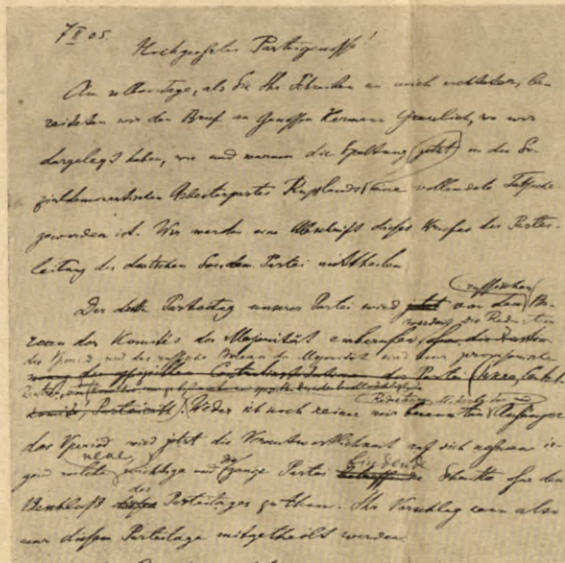 7 II 05.
Hochgeehrter Parteigenosse!
Am selben Tage, als Sie Ihr Schreiben an mich richteten, be-
reiteten wir den Brief an Genossen Hermann Greulich, wo wir
dargelegt haben, wie und warum die Spaltung (jetzt) in der So-
zialdemokratischen Arbeiterpartei Russlands eine vollendete Tatsache
geworden ist. Wir werden eine Abschrift dieses Briefes der Partei-
leitung der deutschen Soz. dem. Partei mittheilen
Der dritte Parteitag unserer Partei wird von dem russischen Bu-
werdend die Redaktion
reau der Komités der Majorität einberufen,
des Vperiod und das russische Bureau der Majorität sind nur provisorische
der Partei
Redaktion
Weder ich noch keiner mir bekannten Anhänger
des Vperiod wird jetzt die Verantwortlichkeit auf sich nehmen ir-
gend welche neue wichtige und die ganze Partei bindende Schritte ohne den
Beschluß des Parteitages zu thun. Ihr Vorschlag kann also
nur diesem Parteitage mitgetheilt werden.